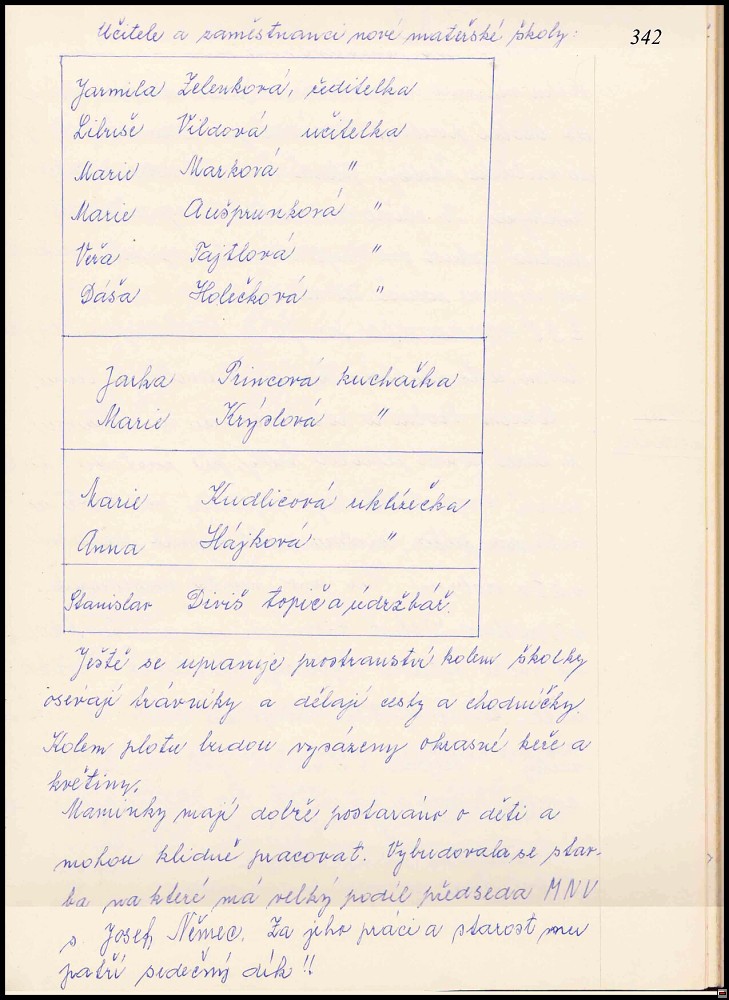 Učitele a zaměstnanci nové mateřské školy:
342
Jarmila Zelenková, ředitelka
Libuše Vildová učitelka
Marie Marková "
Marie Aušprunková "
Věra Tajtlová "
Dáša Holečková "
Jarka Princová kuchařka
Marie Krýslová "
Marie Kudlicová uklízečka
Anna Hájková "
Stanislav Diviš topič a údržbář.
Ještě se upravuje prostranství kolem školky
osévají trávníky a dělají cesty a chodníčky.
Kolem plotu budou vysázeny okrasné keře a
květiny.
Maminky mají dobře postaráno o děti a
mohou klidně pracovat. Vybudovala se stav-
ba na které má velký podíl předseda MNV
s. Josef Němec. Za jeho práci a starost mu
patří srdečný dík!!